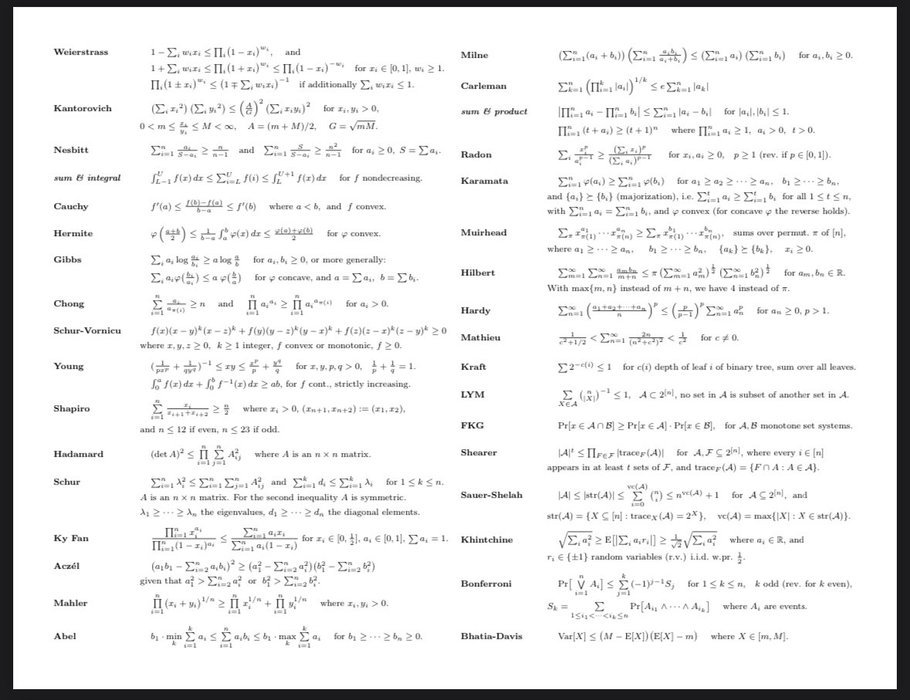 Weierstrass 1 − ∑_i w_i x_i ≤ ∏_i (1 − x_i)^{w_i}, and
1 + ∑_i w_i x_i ≤ ∏_i (1 + x_i)^{w_i} ≤ ∏_i (1 − x_i)^{−w_i} for x_i ∈ [0, 1], w_i ≥ 1.
∏_i (1 ± x_i)^{w_i} ≤ (1 ∓ ∑_i w_i x_i)^{−1} if additionally ∑_i w_i x_i ≤ 1.
Kantorovich (∑_i x_i²) (∑_i y_i²) ≤ (A/G)² (∑_i x_i y_i)² for x_i, y_i > 0,
0 < m ≤ x_i/y_i ≤ M < ∞, A = (m + M)/2, G = √(mM).
Nesbitt ∑_{i=1}^n a_i/(S−a_i) ≥ n/(n−1) and ∑_{i=1}^n S/(S−a_i) ≥ n²/(n−1) for a_i ≥ 0, S = ∑ a_i.
sum & integral ∫_{L−1}^U f(x) dx ≤ ∑_{i=L}^U f(i) ≤ ∫_L^{U+1} f(x) dx for f nondecreasing.
Cauchy f′(a) ≤ (f(b)−f(a))/(b−a) ≤ f′(b) where a < b, and f convex.
Hermite φ((a+b)/2) ≤ 1/(b−a) ∫_a^b φ(x) dx ≤ (φ(a)+φ(b))/2 for φ convex.
Gibbs ∑_i a_i log a_i/b_i ≥ a log a/b for a_i, b_i ≥ 0, or more generally:
∑_i a_i φ(b_i/a_i) ≤ a φ(b/a) for φ concave, and a = ∑ a_i, b = ∑ b_i.
Chong ∑_{i=1}^n a_i/a_{π(i)} ≥ n and ∏_{i=1}^n a_i^{a_i} ≥ ∏_{i=1}^n a_i^{a_{π(i)}} for a_i > 0.
Schur-Vornicu f(x)(x − y)^k(x − z)^k + f(y)(y − z)^k(y − x)^k + f(z)(z − x)^k(z − y)^k ≥ 0
where x, y, z ≥ 0, k ≥ 1 integer, f convex or monotonic, f ≥ 0.
Young (1/(px^p) + 1/(qy^q))^{−1} ≤ xy ≤ x^p/p + y^q/q for x, y, p, q > 0, 1/p + 1/q = 1.
∫_0^a f(x) dx + ∫_0^b f^{−1}(x) dx ≥ ab, for f cont., strictly increasing.
Shapiro ∑_{i=1}^n x_i/(x_{i+1}+x_{i+2}) ≥ n/2 where x_i > 0, (x_{n+1}, x_{n+2}) := (x_1, x_2),
and n ≤ 12 if even, n ≤ 23 if odd.
Hadamard (det A)² ≤ ∏_{i=1}^n ∑_{j=1}^n A_{ij}² where A is an n × n matrix.
Schur ∑_{i=1}^n λ_i² ≤ ∑_{i=1}^n ∑_{j=1}^n A_{ij}² and ∑_{i=1}^k d_i ≤ ∑_{i=1}^k λ_i for 1 ≤ k ≤ n.
A is an n × n matrix. For the second inequality A is symmetric.
λ_1 ≥ ··· ≥ λ_n the eigenvalues, d_1 ≥ ··· ≥ d_n the diagonal elements.
Ky Fan ∏_{i=1}^n x_i^{a_i} / ∏_{i=1}^n (1 − x_i)^{a_i} ≤ ∑_{i=1}^n a_i x_i / ∑_{i=1}^n a_i(1 − x_i) for x_i ∈ [0, 1/2], a_i ∈ [0, 1], ∑ a_i = 1.
Aczél (a_1 b_1 − ∑_{i=2}^n a_i b_i)² ≥ (a_1² − ∑_{i=2}^n a_i²)(b_1² − ∑_{i=2}^n b_i²)
given that a_1² > ∑_{i=2}^n a_i² or b_1² > ∑_{i=2}^n b_i².
Mahler ∏_{i=1}^n (x_i + y_i)^{1/n} ≥ ∏_{i=1}^n x_i^{1/n} + ∏_{i=1}^n y_i^{1/n} where x_i, y_i > 0.
Abel b_1 · min_k ∑_{i=1}^k a_i ≤ ∑_{i=1}^n a_i b_i ≤ b_1 · max_k ∑_{i=1}^k a_i for b_1 ≥ ··· ≥ b_n ≥ 0.
Milne (∑_{i=1}^n (a_i + b_i)) (∑_{i=1}^n a_i b_i/(a_i+b_i)) ≤ (∑_{i=1}^n a_i) (∑_{i=1}^n b_i) for a_i, b_i ≥ 0.
Carleman ∑_{k=1}^n (∏_{i=1}^k |a_i|)^{1/k} ≤ e ∑_{k=1}^n |a_k|
sum & product |∏_{i=1}^n a_i − ∏_{i=1}^n b_i| ≤ ∑_{i=1}^n |a_i − b_i| for |a_i|, |b_i| ≤ 1.
∏_{i=1}^n (t + a_i) ≥ (t + 1)^n where ∏_{i=1}^n a_i ≥ 1, a_i > 0, t > 0.
Radon ∑_i x_i^p/a_i^{p−1} ≥ (∑_i x_i)^p/(∑_i a_i)^{p−1} for x_i, a_i ≥ 0, p ≥ 1 (rev. if p ∈ [0, 1]).
Karamata ∑_{i=1}^n φ(a_i) ≥ ∑_{i=1}^n φ(b_i) for a_1 ≥ a_2 ≥ ··· ≥ a_n, b_1 ≥ ··· ≥ b_n,
and {a_i} ⪰ {b_i} (majorization), i.e. ∑_{i=1}^t a_i ≥ ∑_{i=1}^t b_i for all 1 ≤ t ≤ n,
with ∑_{i=1}^n a_i = ∑_{i=1}^n b_i, and φ convex (for concave φ the reverse holds).
Muirhead ∑_π x_{π(1)}^{a_1} ··· x_{π(n)}^{a_n} ≥ ∑_π x_{π(1)}^{b_1} ··· x_{π(n)}^{b_n}, sums over permut. π of [n],
where a_1 ≥ ··· ≥ a_n, b_1 ≥ ··· ≥ b_n, {a_k} ⪰ {b_k}, x_i ≥ 0.
Hilbert ∑_{m=1}^∞ ∑_{n=1}^∞ a_m b_n/(m+n) ≤ π (∑_{m=1}^∞ a_m²)^{1/2} (∑_{n=1}^∞ b_n²)^{1/2} for a_m, b_n ∈ ℝ.
With max{m, n} instead of m + n, we have 4 instead of π.
Hardy ∑_{n=1}^∞ ((a_1+a_2+···+a_n)/n)^p ≤ (p/(p−1))^p ∑_{n=1}^∞ a_n^p for a_n ≥ 0, p > 1.
Mathieu 1/(c²+1/2) < ∑_{n=1}^∞ 2n/(n²+c²)² < 1/c² for c ≠ 0.
Kraft ∑ 2^{−c(i)} ≤ 1 for c(i) depth of leaf i of binary tree, sum over all leaves.
LYM ∑_{X∈𝒜} (n choose |X|)^{−1} ≤ 1, 𝒜 ⊂ 2^{[n]}, no set in 𝒜 is subset of another set in 𝒜.
FKG Pr[x ∈ 𝒜 ∩ ℬ] ≥ Pr[x ∈ 𝒜] · Pr[x ∈ ℬ], for 𝒜, ℬ monotone set systems.
Shearer |𝒜|^t ≤ ∏_{F∈ℱ} |trace_F(𝒜)| for 𝒜, ℱ ⊆ 2^{[n]}, where every i ∈ [n]
appears in at least t sets of ℱ, and trace_F(𝒜) = {F ∩ A : A ∈ 𝒜}.
Sauer-Shelah |𝒜| ≤ |str(𝒜)| ≤ ∑_{i=0}^{vc(𝒜)} (n choose i) ≤ n^{vc(𝒜)} + 1 for 𝒜 ⊆ 2^{[n]}, and
str(𝒜) = {X ⊆ [n] : trace_X(𝒜) = 2^X}, vc(𝒜) = max{|X| : X ∈ str(𝒜)}.
Khintchine √(∑_i a_i²) ≥ E[|∑_i a_i r_i|] ≥ 1/√2 √(∑_i a_i²) where a_i ∈ ℝ, and
r_i ∈ {±1} random variables (r.v.) i.i.d. w.pr. 1/2.
Bonferroni Pr[⋁_{i=1}^n A_i] ≤ ∑_{j=1}^k (−1)^{j−1} S_j for 1 ≤ k ≤ n, k odd (rev. for k even),
S_k = ∑_{1≤i_1<···<i_k≤n} Pr[A_{i_1} ∧ ··· ∧ A_{i_k}] where A_i are events.
Bhatia-Davis Var[X] ≤ (M − E[X])(E[X] − m) where X ∈ [m, M].